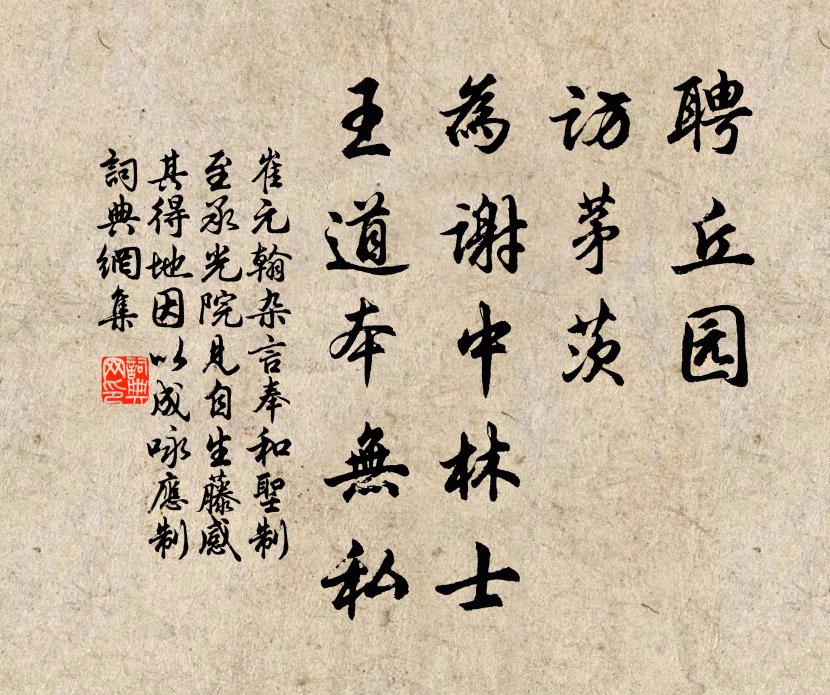 聘丘园
访茅茨
為謝中林士
王道本無私
崔元翰杂言奉和聖制
至承光院見自生藤感
其得地因以成咏應制
詞典網集
詞典網印